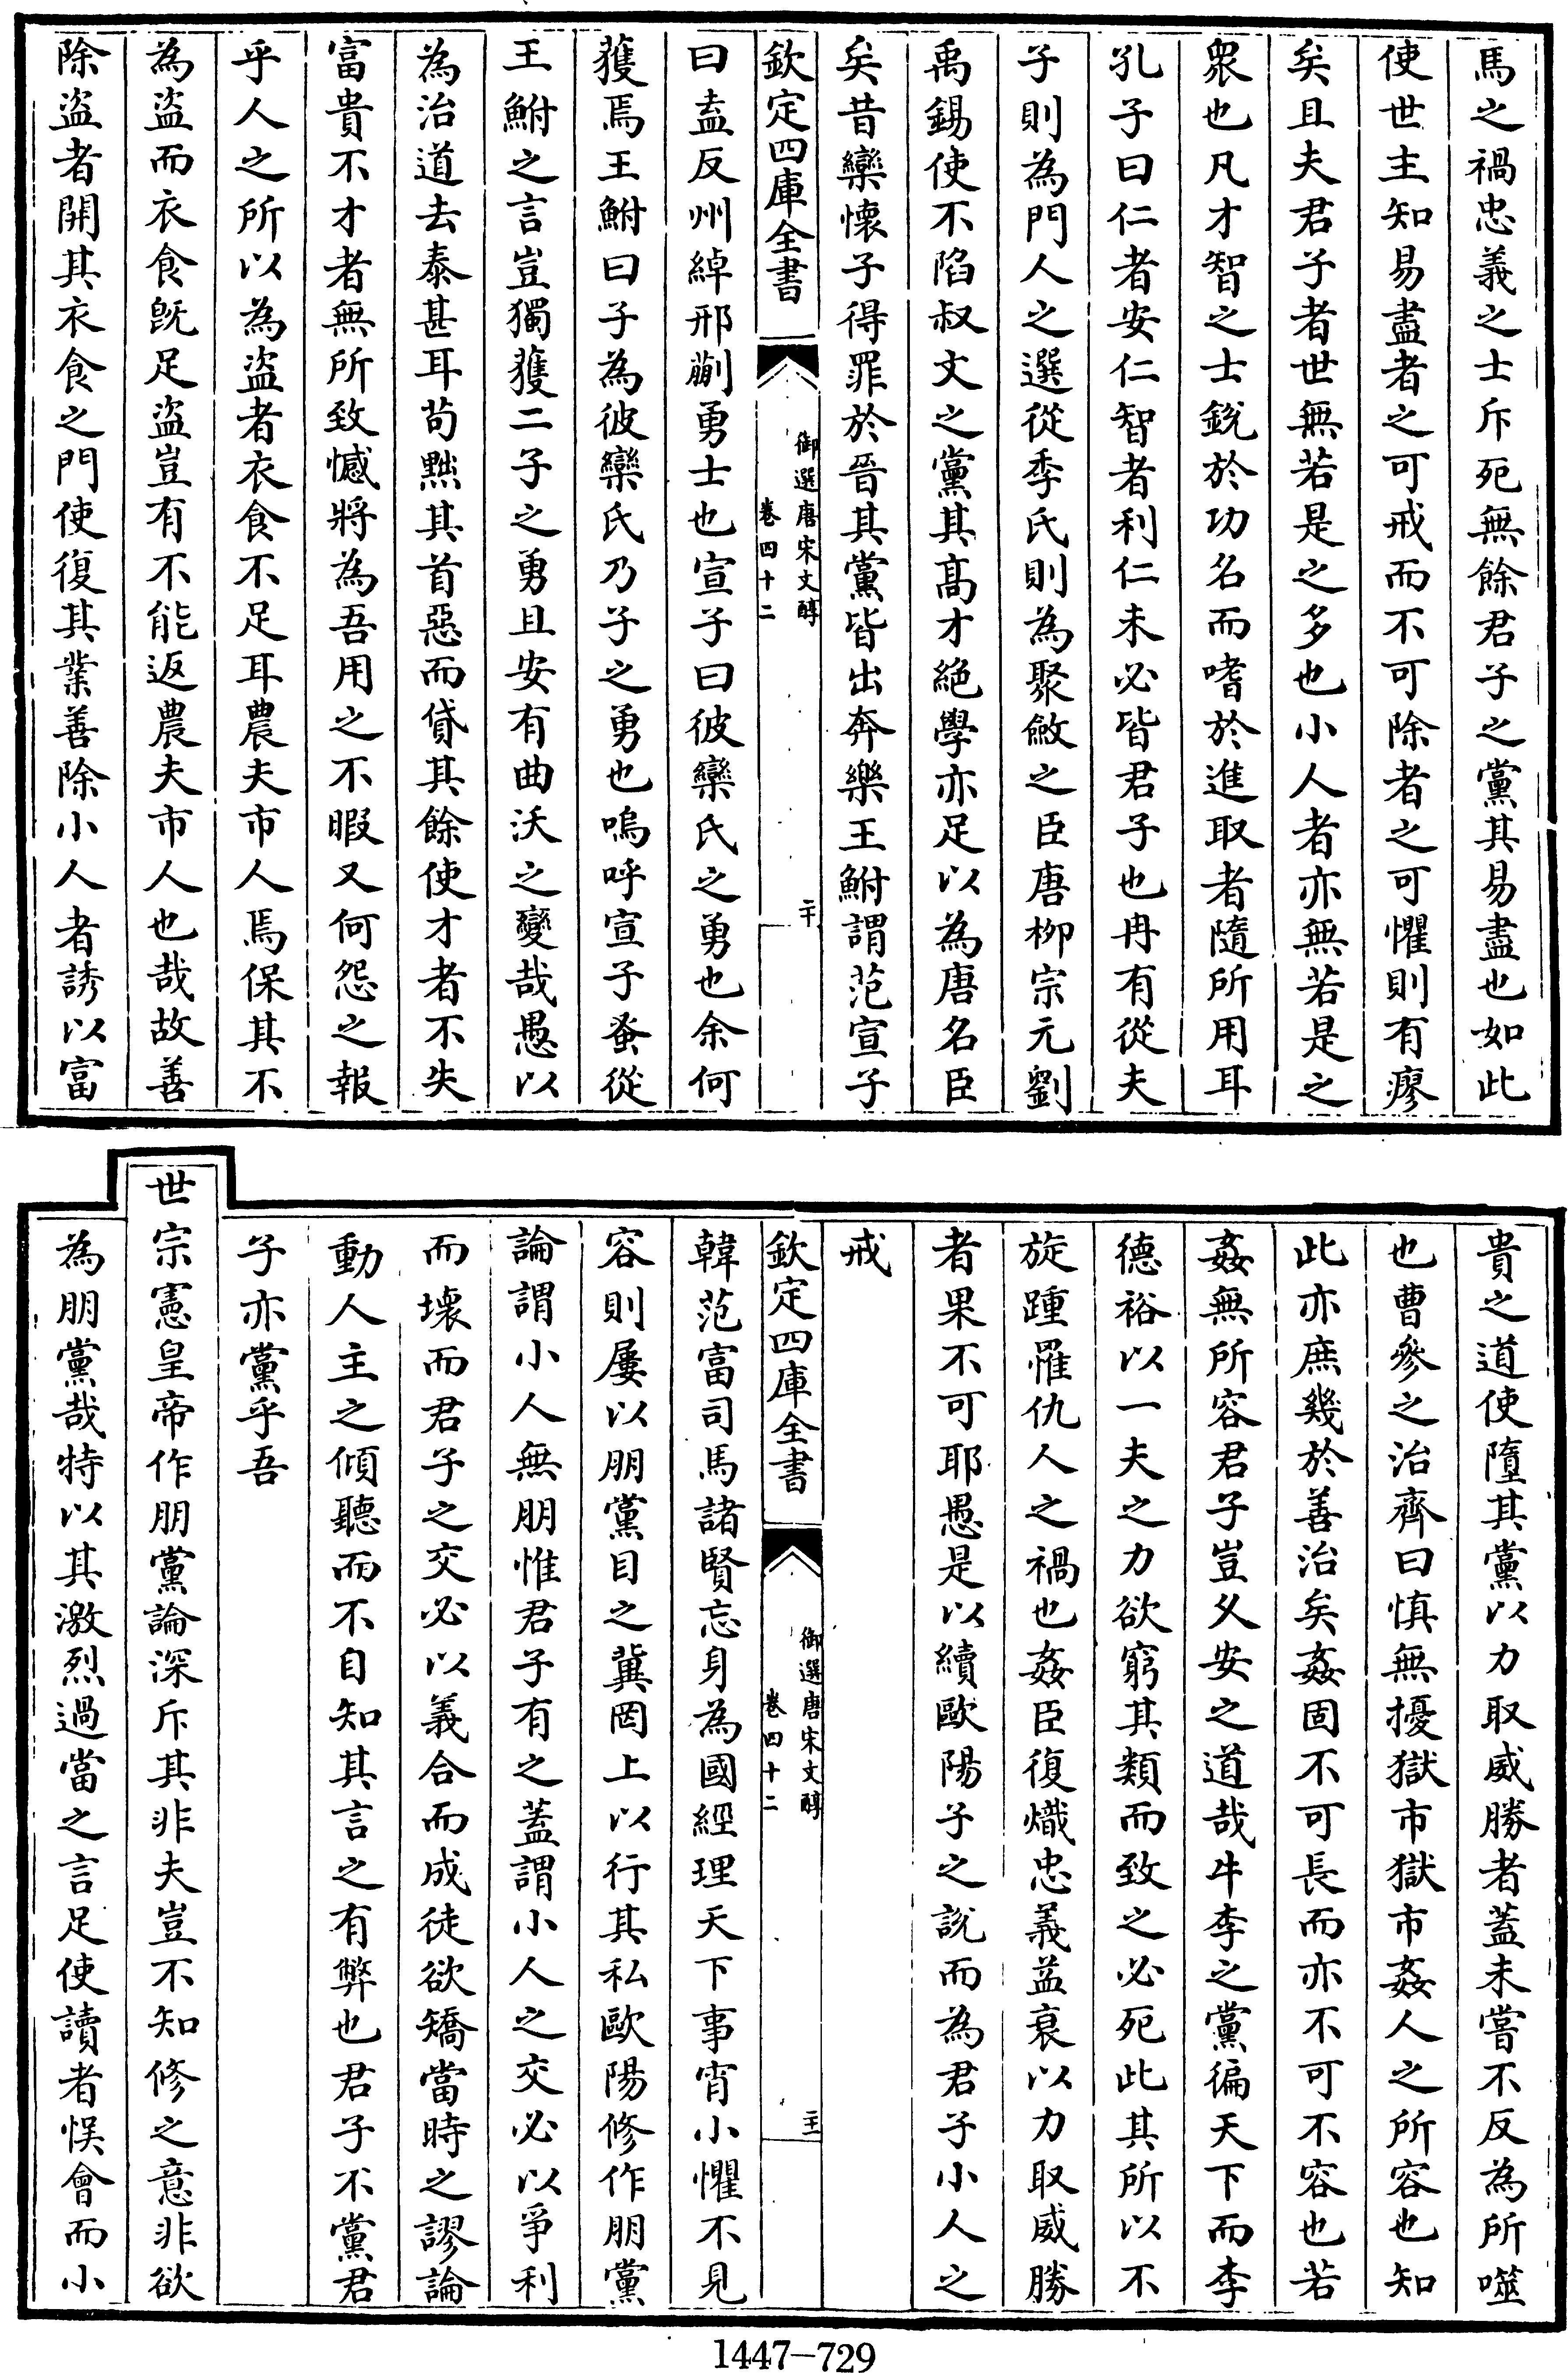 馬之禍忠義之士斥死無餘君子之黨其易盡也如此
使世主知易盡者之可戒而不可除者之可懼則有瘳
矣且夫君子者世無若是之多也小人者亦無若是之
衆也凡才智之士銳於功名而嗜於進取者隨所用耳
孔子曰仁者安仁智者利仁未必皆君子也冉有從夫
子則為門人之選從季氏則為聚斂之臣唐柳宗元劉
禹錫使不陷叔文之黨其髙才絶學亦足以為唐名臣
矣昔欒懷子得罪於晉其黨皆出奔樂王鮒謂范宣子
欽定四庫全書
御選唐宋文醇
卷四十二
二十
曰盍反州綽邢蒯勇士也宣子曰彼欒氏之勇也余何
獲焉王鮒曰子為彼欒氏乃子之勇也嗚呼宣子蚤從
王鮒之言豈獨獲二子之勇且安有曲沃之變哉愚以
為治道去泰甚耳苟黜其首惡而貸其餘使才者不失
富貴不才者無所致憾將為吾用之不暇又何怨之報
乎人之所以為盜者衣食不足耳農夫市人焉保其不
為盜而衣食旣足盜豈有不能返農夫市人也哉故善
除盜者開其衣食之門使復其業善除小人者誘以富
貴之道使隳其黨以力取威勝者蓋未嘗不反為所噬
也曹參之治齊曰慎無擾獄市獄市姦人之所容也知
此亦庶幾於善治矣姦固不可長而亦不可不容也若
姦無所容君子豈乆安之道哉牛李之黨徧天下而李
德裕以一夫之力欲窮其類而致之必死此其所以不
旋踵罹仇人之禍也姦臣復熾忠義益衰以力取威勝
者果不可耶愚是以續歐陽子之說而為君子小人之
戒
欽定四庫全書
御選唐宋文醇
卷四十二
二十一
韓范富司馬諸賢忘身為國經理天下事宵小懼不見
容則屢以朋黨目之冀罔上以行其私歐陽修作朋黨
論謂小人無朋惟君子有之蓋謂小人之交必以爭利
而壞而君子之交必以義合而成徒欲矯當時之謬論
動人主之傾聽而不自知其言之有弊也君子不黨君
子亦黨乎吾
世宗憲皇帝作朋黨論深斥其非夫豈不知修之意非欲
為朋黨哉特以其激烈過當之言足使讀者悞會而小
1447—729